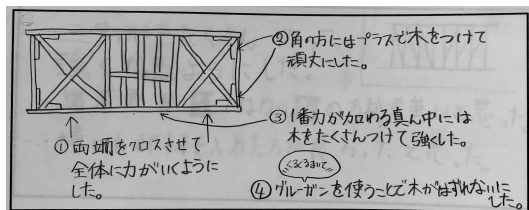 ②角の方にはプラスで木をつけて
頑丈にした。
③1番力が加わる真ん中には
木をたくさんつけて強くした。
①両端をクロスさせて
全体に力がいくように
した。
ぐるぐるまいて
④グルーガンを使うことで木がはずれないに
した。